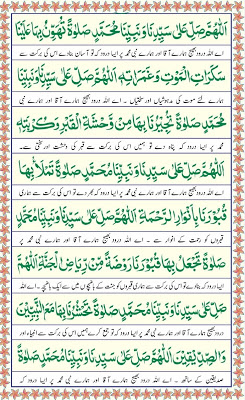 اَللّٰهُمَّ صَلِّ عَلٰى سَيِّدِنَا وَنَبِيِّنَا مُحَمَّدٍ صَلٰوةً تُهَوِّنُ بِهَا عَلَيْنَا
اے اللہ درود بھیج ہمارے آقا اور ہمارے نبی محمد پر ایسا درود کہ تو آسان بنادے اس کی برکت سے
سَكَرَاتِ الْمَوْتِ وَغَمَرَاتِهٖ اَللّٰهُمَّ صَلِّ عَلٰى سَيِّدِنَا وَنَبِيِّنَا
ہمارے لئے موت کی مدہوشیاں اور سختیاں ۔ اے اللہ درود بھیج ہمارے آقا اور ہمارے نبی
مُحَمَّدٍ صَلٰوةً تُجِيْرُنَا بِهَا مِنْ وَحْشَةِ الْقَبْرِ وَكُرْبَتِهٖ
محمد پر ایسا درود کہ پناہ دے تو ہمیں اس کی برکت سے قبر کی وحشت اور سختی سے۔
اَللّٰهُمَّ صَلِّ عَلٰى سَيِّدِنَا وَنَبِيِّنَا مُحَمَّدٍ صَلٰوةً تَمْلَأُ بِهَا
اے اللہ درود بھیج ہمارے آقا اور ہمارے نبی محمد پر ایسا درود کہ بھر دے تو اس کی برکت سے ہماری
قُبُوْرَنَا بِاَنْوَارِ الرَّحْمَةِ اَللّٰهُمَّ صَلِّ عَلٰى سَيِّدِنَا وَنَبِيِّنَا مُحَمَّدٍ
قبروں کو رحمت کے انوار سے ۔ اے اللہ درود بھیج ہمارے آقا اور ہمارے نبی محمد پر
صَلٰوةً تَجْعَلُ بِهَا قُبُوْرَنَا رَوْضَةً مِّنْ رِيَاضِ الْجَنَّةِ اَللّٰهُمَّ
ایسا درود کہ بنادے تو اس کی برکت سے ہماری قبروں کو جنت کے باغیچوں میں سے ایک باغیچہ۔ اے اللہ
صَلِّ عَلٰى سَيِّدِنَا وَنَبِيِّنَا مُحَمَّدٍ صَلٰوةً تَحْشُرُنَا بِهَا مَعَ النَّبِيِّيْنَ
درود بھیج ہمارے آقا اور ہمارے نبی محمد پر ایسا درود کہ تو جمع کرے ہمیں اس کی برکت سے انبیاء اور
وَالصِّدِّيْقِيْنَ اَللّٰهُمَّ صَلِّ عَلٰى سَيِّدِنَا وَنَبِيِّنَا مُحَمَّدٍ صَلٰوةً
صدیقین کے ساتھ ۔ اے اللہ درود بھیج ہمارے آقا اور ہمارے نبی محمد پر ایسا درود کہ